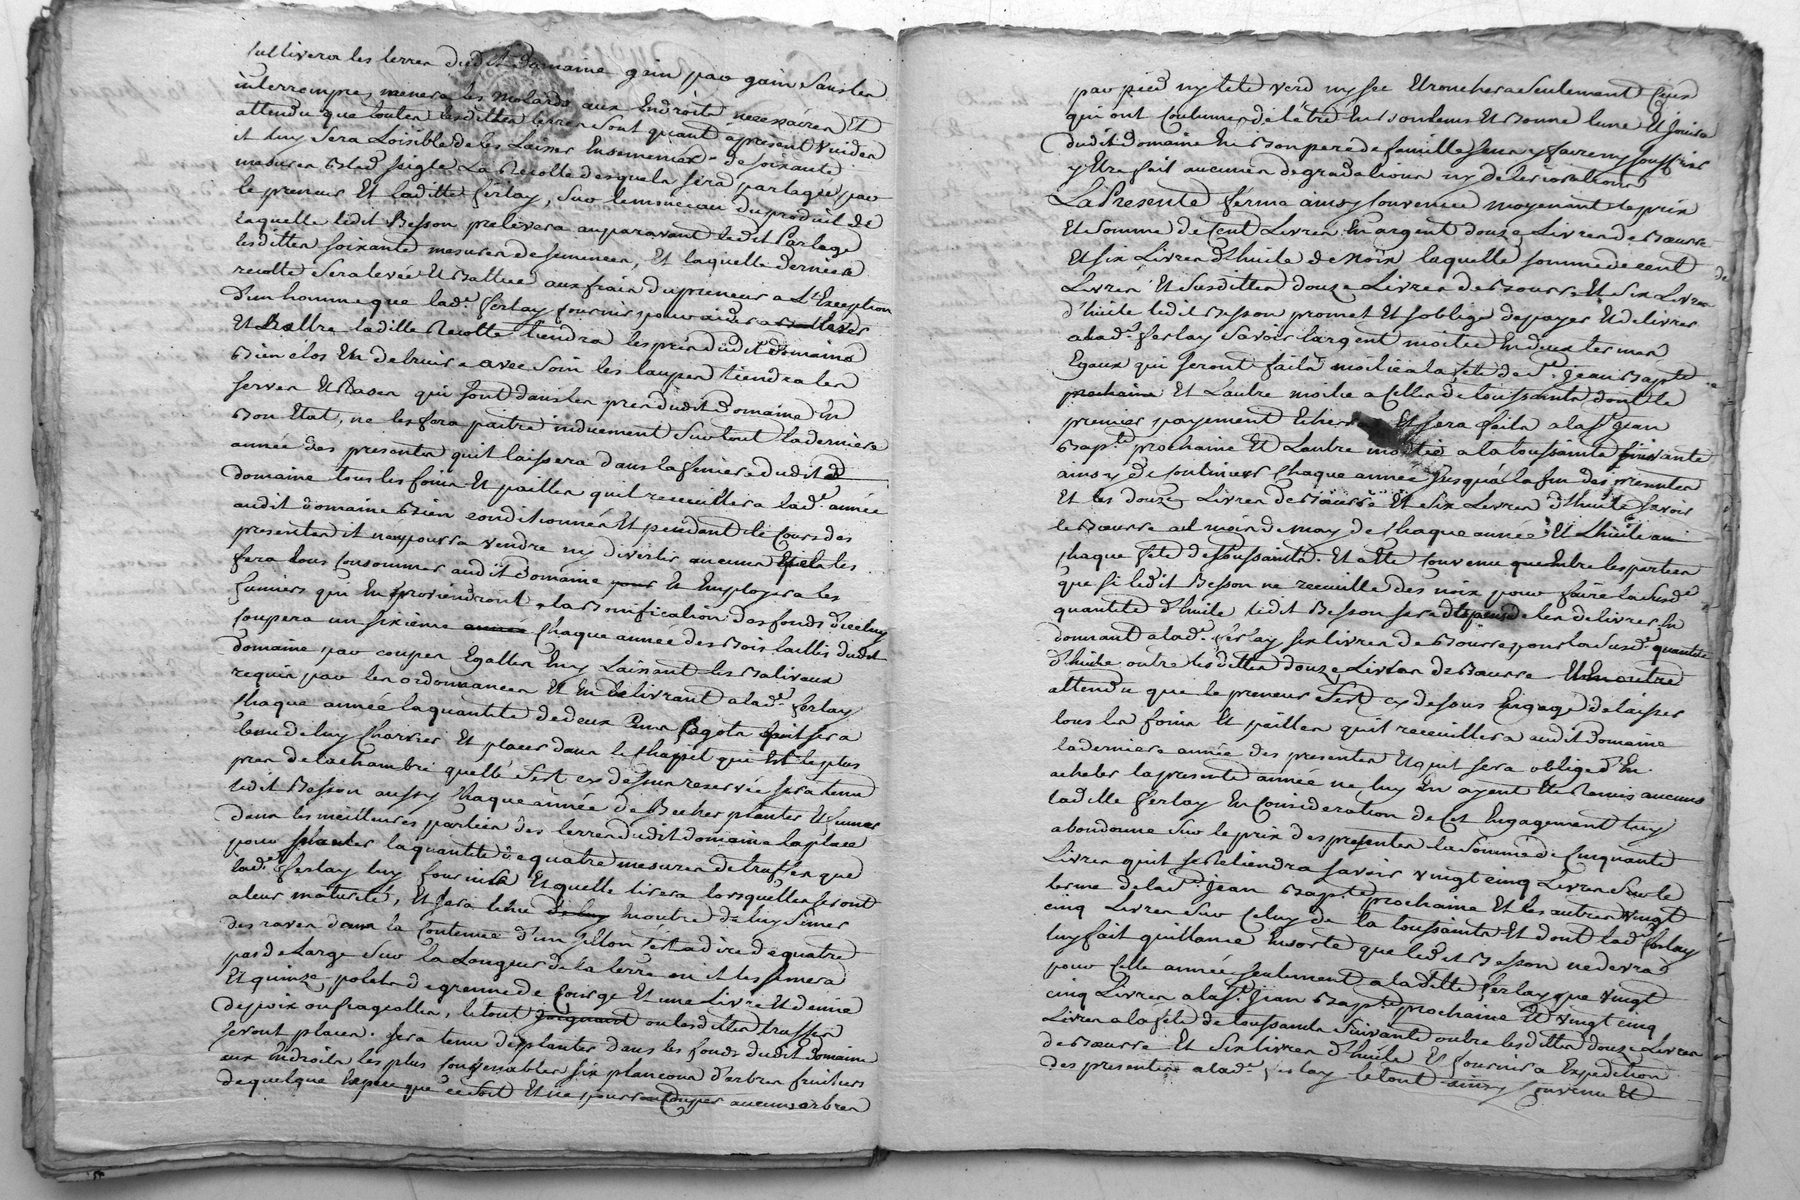 cultivera les terres dudit domaine grin par gain sans les
interrompre, menera les molards aux Endroits necessaires Et
attendu que toutes lesdittes terres sont quant apresent vuides
il luy sera Loisible de les Laisser Ensemencer de soixante
mesures Bled seigle La Recolte desquels sera partagée par
le preneur Et laditte ferlay, sur le monceau du produit de
laquelle ledit Besson prelevera auparavant ledit Partage
lesdittes soixante mesures de semences, Et laquelle derniere
recolte sera levée Et Battue aux frais du preneur a L'Exception
d'un homme que lad.e ferlay fournir pour aider a lever
Et Battre laditte Recolte tiendra les prés dudit domaine
Bien clos En detruire avec soin les taupes tiendra les
serves Et Rases qui sont dans les prés dudit Domaine En
Bon Etat, ne les fera paitre induement sur tout la derniere
année des presentes qu'il laissera dans la feniere dudit
domaine tous les foins Et pailles qu'il recueillera lad.e année
audit domaine Bien conditionnés Et pendant le Cours des
presentes il n'en pourra vendre ny divertir aucuns Et les
fera tous Consommer audit Domaine Et Employera les
fumiers qui En proviendront a la Bonification des fonds d'iceluy
coupera un sixieme chaque année des Bois taillis dudit
Domaine par coupes Egalles En y Laissant les Balivaux
requis par les ordonnances Et En delivrant a lad.e ferlay
chaque année la quantité de deux Cens fagots qu'il sera
tenu de luy Charrier Et placer dans le Chappit qui Est le plus
pres de la chambre quelle s'est cy dessus reservée sera tenu
ledit Besson aussy chaque année de Becher planter Et fumer
dans les meilleures parties des terres dudit domaine la place
pour planter la quantité de quatre mesures de truffes que
lad.e ferlay luy fournira Et quelle tirera lorsquelles seront
a leur maturité, Et sera tenu En outre de luy semer
des raves dans la Contenue d'un sillon c'est a dire de quatre
pas de Large sur la Longueur de la terre ou il les semera
Et quinze polets de grenne de Courge Et une Livre Et demie
de poix ou frageolles, le tout ou lesdittes truffes
seront placées. sera tenu de planter dans les fonds dudit Domaine
aux Endroits les plus Convenables six plançons d'arbres fruitiers
de quelque Espece que ce soit Et ne pourra Couper aucuns arbres
par pied ny tete verd ny sec Et ronchera seulement Ceux
qui ont Coutume de l'être En tems Et Bonne lune Et jouira
dudit Domaine En Bon pere de famille sans y faire ny souffrir
y Etre fait aucunes degradations ny deteriorations
La Presente ferme ainsy Convenue moyenant le prix
Et somme de Cent Livres En argent douze Livres de Bœurre
Et six Livres d'huile de Noix laquelle somme de cent
Livres Et susdittes douze Livres de Beurre Et six Livres
d'huile ledit Besson promet Et s'oblige de payer Et delivrer
a lad.e ferlay savoir l'argent moitie En deux termes
Egaux qui seront faits moitié a la fête de St. Jean Bapte
prochaine Et L'autre moitie a Celles de toussaints dont le
premier payement Echera Et sera fait a la St. jean
Bapt.e prochaine Et L'autre moitié a la toussaints suivante
ainsy de Continuer chaque année jusqu'a la fin des presentes
Et les douze Livres de Bœurre Et six Livres d'huile savoir
le Bœurre au mois de may de Chaque année Et L'huile aussi
chaque fete de toussaints. Et a Eté Convenu que Entre les parties
que si ledit Besson ne recueille des noix pour faire la susd.e
quantité d'huile ledit Besson sera dispensé de les delivrer En
donnant a lad.e ferlay six livres de Beurre pour la susd.e quantité
d'huile outre lesdittes douze Livres de Bœurre Et En outre
attendu que le preneur s'est cy dessus Engagé de laisser
tous les foins Et pailles qu'il recueillera audit Domaine
la derniere année des presentes Et qu'il sera obligé d'En
acheter la presente année ne luy En ayent Eté Remis aucuns
laditte ferlay En Consideration de Cet Engagement luy
abondonne sur le prix des presentes la somme de Cinquante
Livres qu'il se retiendra savoir vingt cinq Livres sur le
terme de la St. jean Bapt.e prochaine Et les autres vingt
cinq Livres sur Celuy de la toussaints Et dont lad.e ferlay
luy fait quittance Ensorte que ledit Besson ne devra
pour Cette année seulement a laditte ferlay que vingt
cinq Livres a la St. jean Bapt.e prochaine Et vingt cinq
Livres a la fete de toussaints suivante outre lesdittes douze Livres
de Bœurre Et six livres d'huile Et fournira Expedition
des presentes a lad.e ferlay le tout ainsy Convenu Et